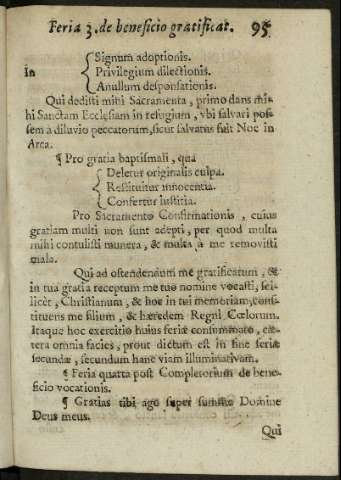 Feria 3. de beneficio gratificat. 95
Signum adoptionis.
In Privilegium dilectionis.
Anullum desponsationis.
Qui dedisti mihi Sacramenta, primo dans mi-
hi Sanctam Ecclesiam in refugium, vbi salvari pos-
sem à diluvio peccatorum, sicut salvatus fuit Noe in
Arca.
¶ Pro gratia baptismali, qua
Deletur originalis culpa.
Restituitur innocentia.
Confertur Iustitia.
Pro Sacramento Confirmationis, cuius
gratiam multi non sunt adepti, per quod multa
mihi contulisti munera, & multa à me removisti
mala.
Qui ad ostendendum me gratificatum, &
in tua gratia receptum me tuo nomine vocasti, sci-
licèt, Christianum, & hoc in tui memoriam, consti-
tituens me filium, & hæredem Regni Cœlorum.
Itaque hoc exercitio huius feriæ consummato, cæ-
tera omnia facies, prout dictum est in fine feriæ
secundæ, secundum hanc viam illuminativam.
¶ Feria quarta post Completorium de bene-
ficio vocationis.
¶ Gratias tibi ago super summe Domine
Deus meus.
Qui